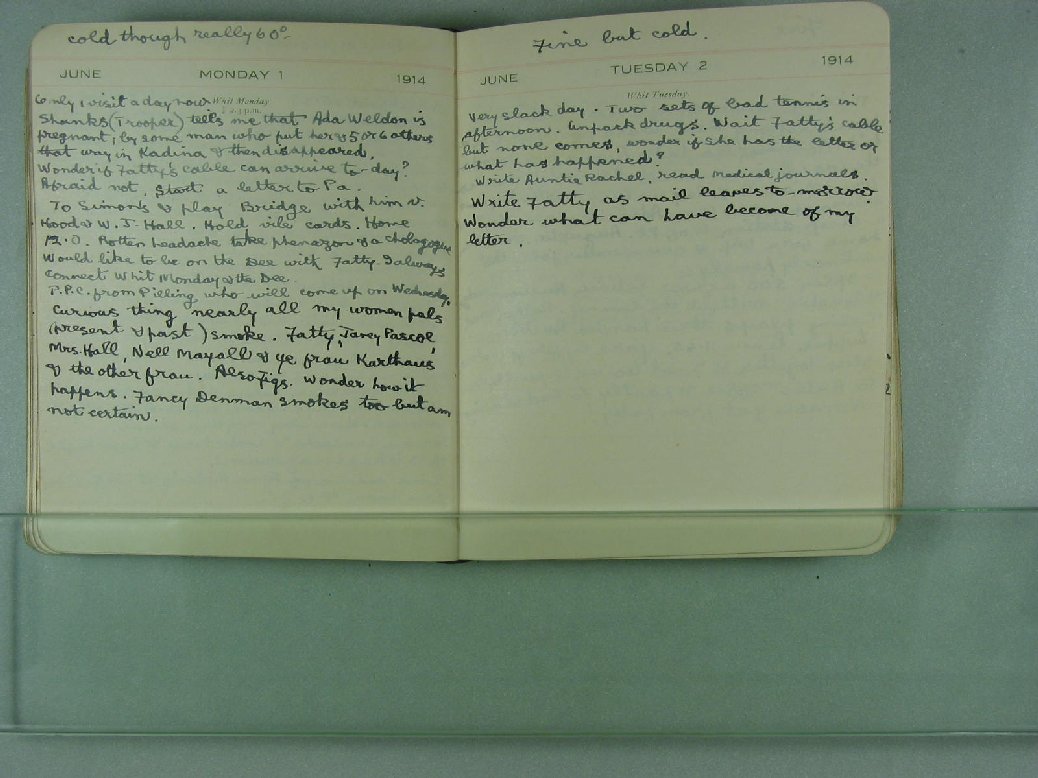 cold though really 60°.
JUNE MONDAY 1 1914
Whit Monday
Only 1 visit a day now
Shanks (Trooper) tells me that Ada Weldon is
pregnant, by some man who put her & 5 or 6 others
that way in Kadina & then disappeared.
Wonder if Fatty's cable can arrive to-day?
Afraid not. Start a letter to Pa.
To Simon's & play Bridge with him v.
Hood & W. J. Hall. Hold vile cards. Home
12.0. Rotten headache take phenazon & a cholagogue
Would like to be on the Dee with Fatty. I always
connect Whit Monday & the Dee.
P.P.C. from Pilling who will come up on Wednesday.
Curious thing nearly all my women pals
(present & past) smoke. Fatty, Janey Pascoe,
Mrs. Hall, Nell Mayall & ye frau Karthaus
& the other frau. Also Figs. Wonder how it
happens. Fancy Denman smokes too but am
not certain.
Fine but cold.
JUNE TUESDAY 2 1914
Whit Tuesday.
Very slack day. Two sets of bad tennis in
afternoon. Unpack drugs. Wait Fatty's cable
but none comes, wonder if she has the letter or
what has happened?
Write Auntie Rachel, read Medical journals.
Write Fatty as mail leaves to-morrow.
Wonder what can have become of my
letter.